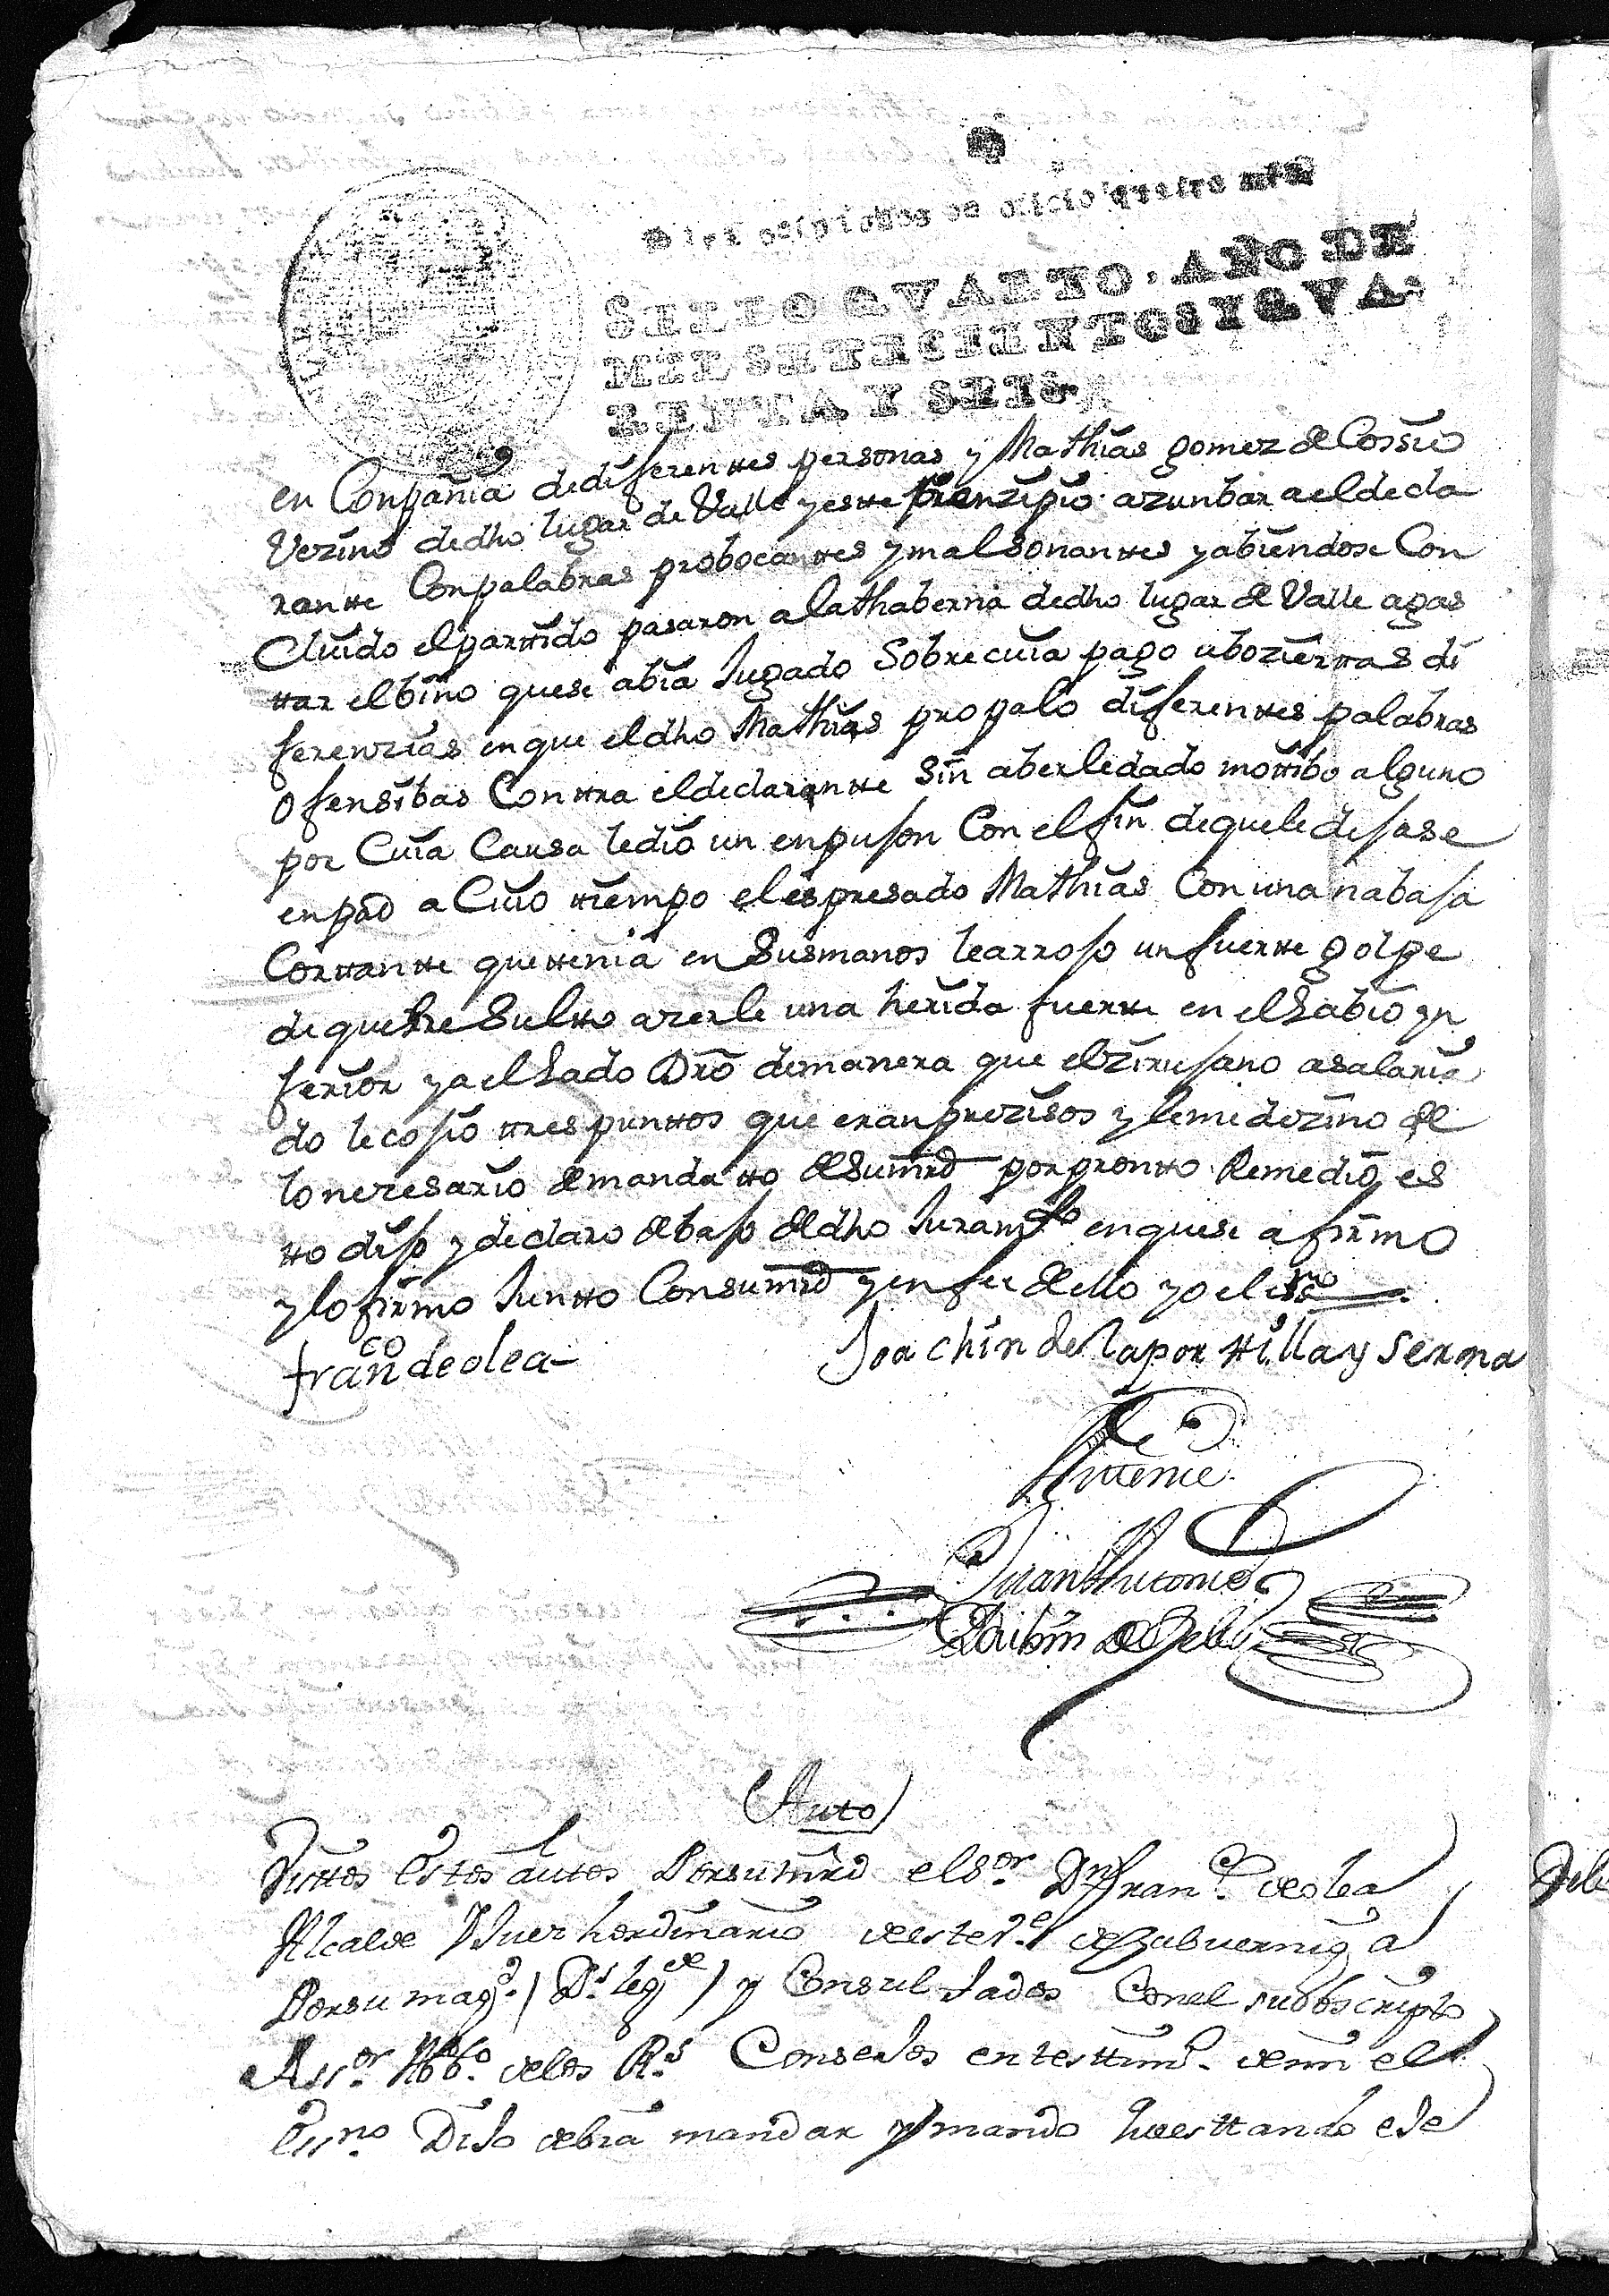 de oficio quatro mrs
SELLO QVARTO, AÑO DE
MIL SETECIENTOS Y QVA-
RENTA Y SEIS.
en Conpañia de diferenttes personas y Mathias gomez de Cossio
Vezino de dho lugar de Valle y estte prenzipio azunbar a el decla
rantte Con palabras probocanttes y mal sonanttes y abiendose Con
Cluido el parttido pasaron a la thaberna de dho lugar de Valle a gas
ttar el bino que se abia Jugado Sobre cuia pago ubo ziertas di
ferenzias en que el dho Mathias propalo diferenttes palabras
ofensibas Conttra el declarantte sin aberle dado mottibo alguno
por Cuia Causa le dio un enpujon Con el fin de que le dejase
en paz a Cuio ttiempo el espresado Mathias Con una nabaja
Corttantte que ttenia en Sus manos le arrojo un fuertte golpe
de que Resultto azerle una herida fuertte en el Labio yn
ferior y a el Lado Dro de manera que el zirujano asalaria
do le cosio ttres punttos que eran prezisos y le medezino de
lo nezesario de mandatto de su mrd por prontto Remedio, es
tto dijo y declaro debajo de dho Juramto en que se afirmo
y lo firmo Juntto Con su mrd y en fee de ello yo el essno
franco de olea
Joachin de la porttilla y serna
Antte mi
Juan Antonio
Auto
Vistos Estos autos Por su mrd el sor Dn franco de olea
Alcalde Juez hordinario de este Ve de Cabuerniga
Por su magd (Ds lege) y Consultados Con el subscripto
Assor Abbdo de los Rs Consejos en testtimo de mi el
Essno Dijo debia mandar y mando